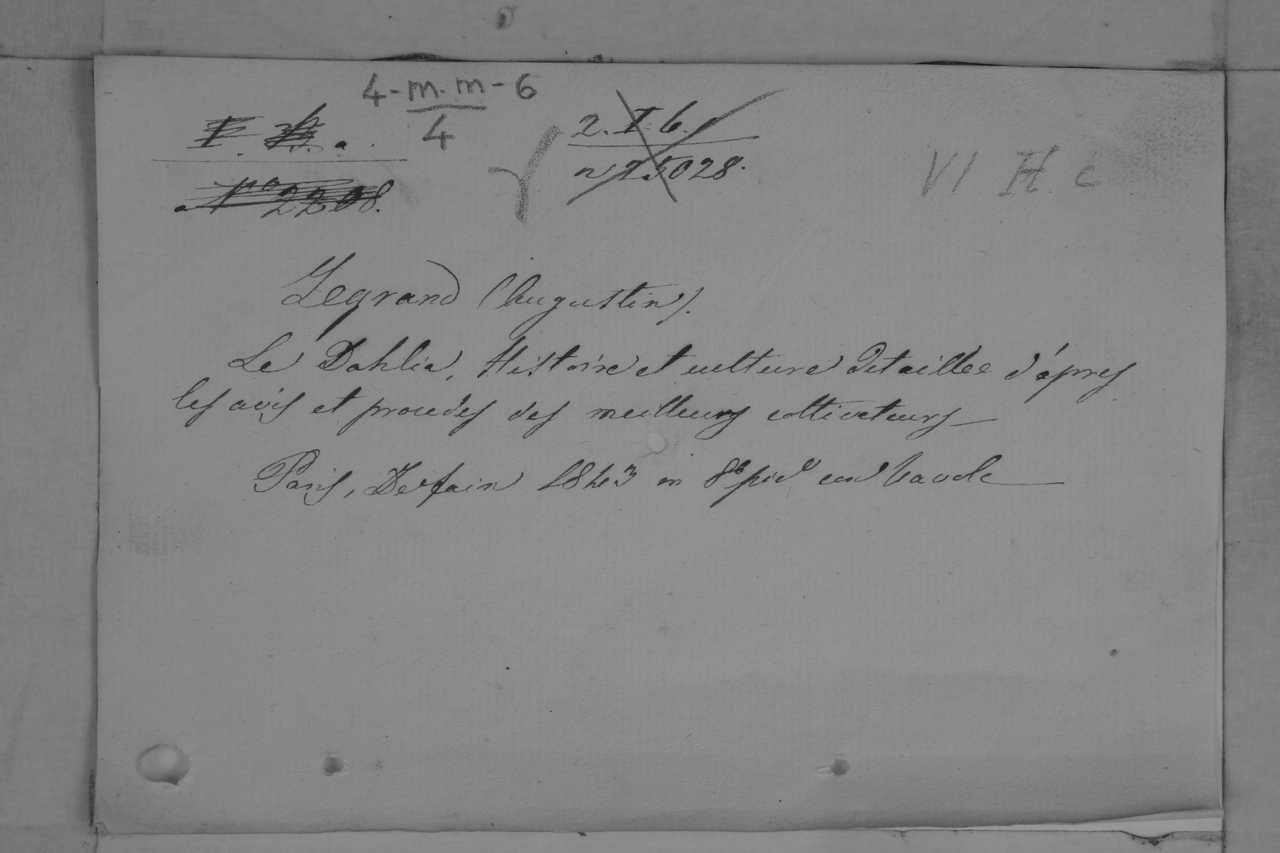 4-m.m-6
4
2. I. 6.
n 15028.
VI H. c
N° 2208.
Legrand (Augustin).
Le Dahlia, Histoire et culture détaillée d'áprès
les avis et procédés des meilleurs cultivateurs
Paris, 1843 in 8°